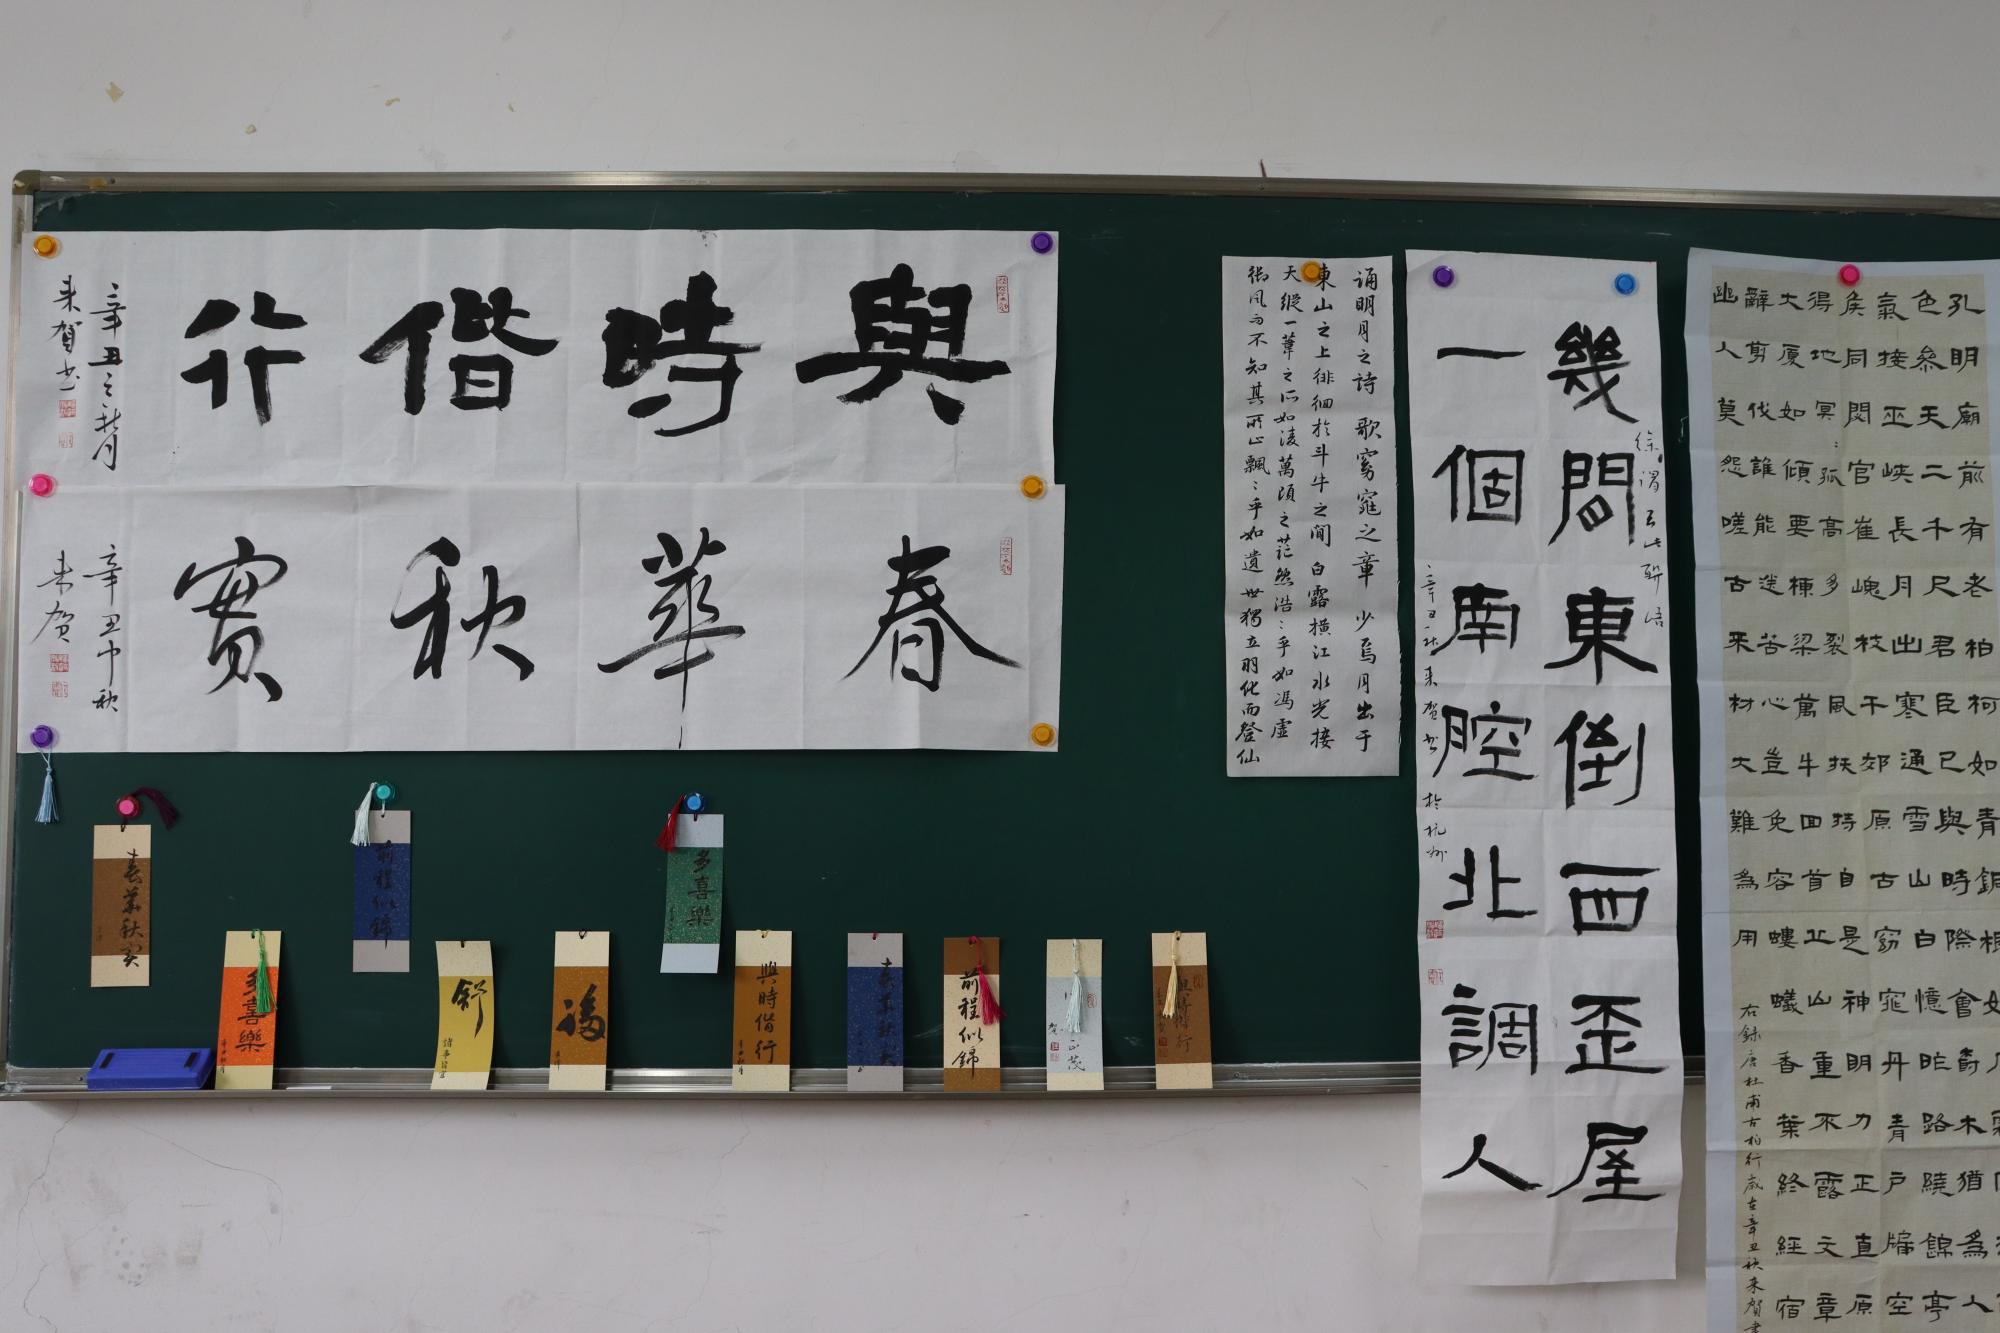 與時偕行
辛丑之秋月
来賀书
春華秋實
辛丑中秋
来賀
誦明月之詩歌窈窕之章少焉月出于
東山之上徘徊於斗牛之間白露横江水光接
天縱一葦之所如淩萬頃之茫然浩〻乎如馮虚
御风而不知其所止飄〻乎如遺世獨立羽化而登仙
幾間東倒西歪屋
一個南腔北調人
徐渭
辛丑秋来賀书於杭州
孔明廟前有老柏柯如青銅
色參天二千尺君臣已與時際會
氣接巫峽長月出寒通雪山白憶昨路繞錦亭
矦同閟宮崔嵬枝干郊原古窈窕丹青戶牖空
得地冥〻孤高多裂風扶持自是神明力正直原
大厦如傾要棟梁萬牛回首丘山重不露文章
辭剪伐誰能送苦心豈免容螻蟻香葉終經宿
幽人莫怨嗟古來材大難為用
右録唐杜甫古柏行歲在辛丑秋来賀書
春華秋实
前程似錦
多喜樂
多喜樂
舒
諸事皆宜
福
與時偕行
春華秋实
前程似錦
與時偕行